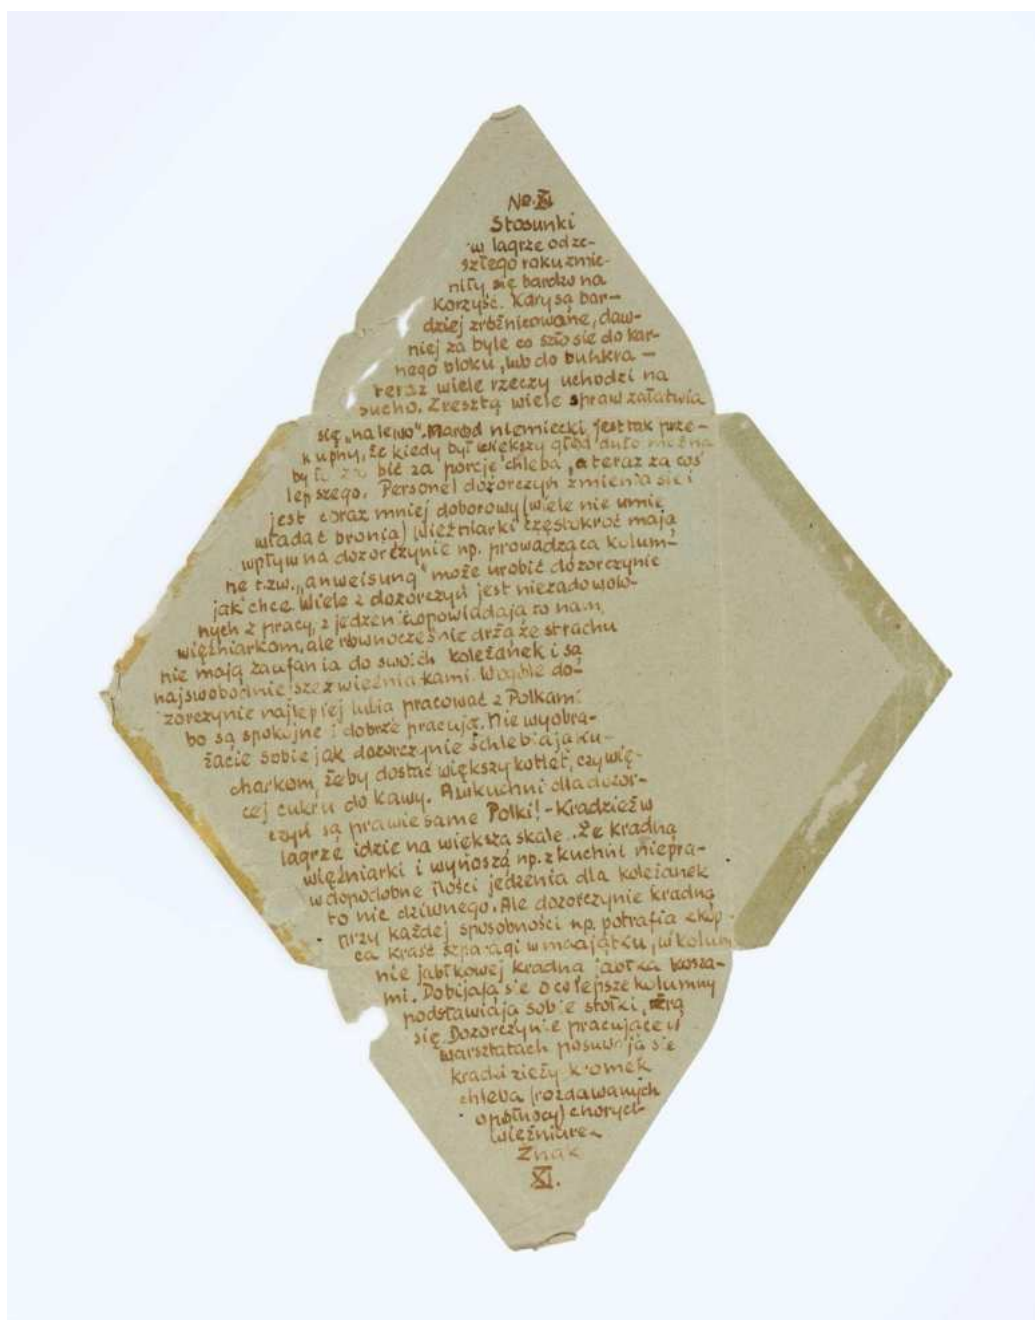 No. XI
Stosunki
w lagrze od ze-
szłego roku zmie-
niły się bardzo na
korzyść. Kary są bar-
dziej zróżnicowane, daw-
niej za byle co szło się do kar-
nego bloku, lub do bunkra -
teraz wiele rzeczy uchodzi na
sucho. Zresztą wiele spraw załatwia
się „na lewo". Naród niemiecki jest tak prze-
kupny, że kiedy był większy głód dużo można
było zrobić za porcję chleba, a teraz za coś
lepszego. Personel dozorczyń zmienia się i
jest coraz mniej doborowy (wiele nie umie
władać bronią) Więźniarki częstokroć mają
wpływ na dozorczynie np. prowadząca kolum-
nę t.zw. „anweisung" może urobić dozorczynię
jak chce. Wiele z dozorczyń jest niezadowolo-
nych z pracy, z jedzenia opowiadają to nam,
więźniarkom, ale równocześnie drżą ze strachu
nie mają zaufania do swoich koleżanek i są
najswobodniejsze z więźniarkami. Wogóle do-
zorczynie najlepiej lubią pracować z Polkami
bo są spokojne i dobrze pracują. Nie wyobra-
żacie sobie jak dozorczynie schlebiają ku-
charkom, żeby dostać większy kotlet, czy wię-
cej cukru do kawy. A w kuchni dla dozor-
czyń są prawie same Polki! - Kradzież w
lagrze idzie na większą skalę. Że kradną
więźniarki i wynoszą np. z kuchni niepra-
wdopodobne ilości jedzenia dla koleżanek
to nie dziwnego. Ale dozorczynie kradną
przy każdej sposobności np. potrafią z kop-
ca kraść szparagi w maajątku, w kolum
nie jabłkowej kradną jabłka kosza-
mi. Dobijają się o co lepsze kolumny
podstawiają sobie stołki, żrą
się. Dozorczynie pracujące w
warsztatach posuwają się
kradzieży kromek
chleba (rozdawanych
o północy) chorych
więźniarek
Znak
XI.